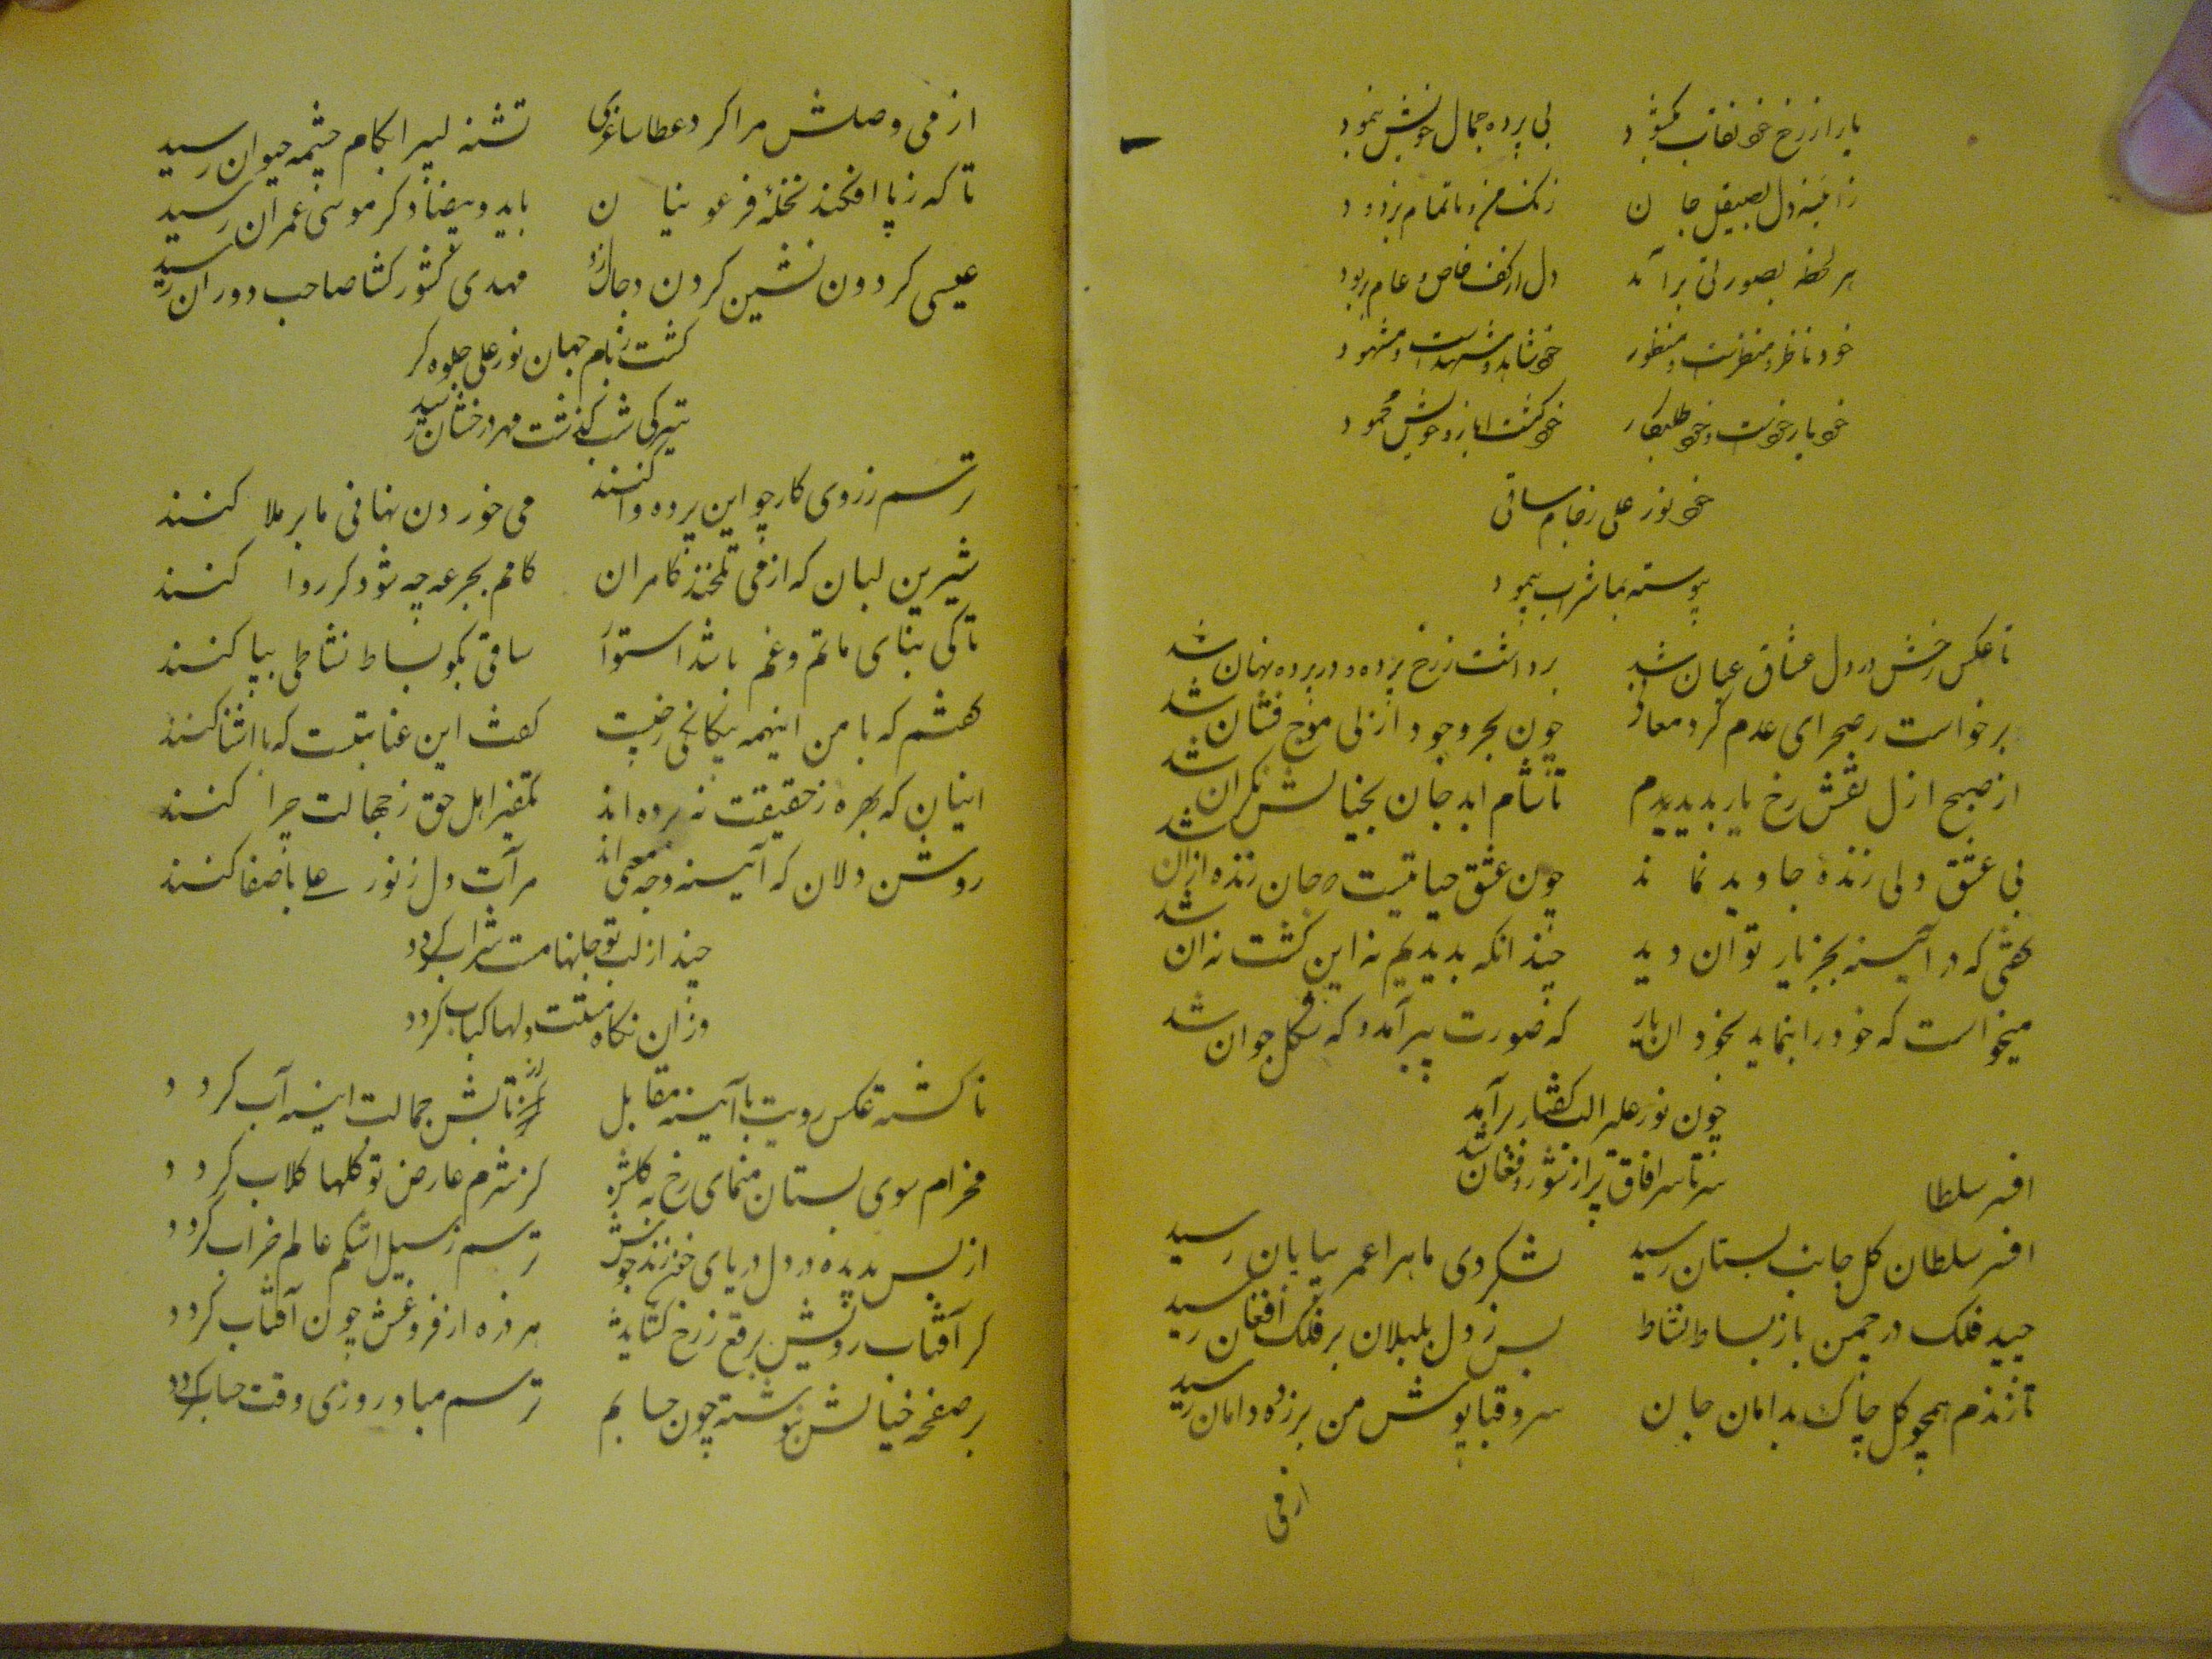 یار از رخ خود نقاب بکشود بی پرده جمال خویش بنمود
ز آئینه دل بصیقل جان زنک من و ما تمام بزدود
هر لحظه بصورتی برآمد دل از کف خاص و عام ربود
خود ناظر و منظرست و منظور خود شاهد و مشهدست و مشهود
خود یار خودست و خود طلبکار خود کشت ایاز و خویش محمود
خود نور علی ز جام ساقی
پیوسته بما شراب پیمود
تا عکس رخش در دل عشاق عیان شد برداشت ز رخ پرده و در پرده نهان شد
برخواست ز صحرای عدم کرد معانی چون بحر وجود ازلی موج فشان شد
از صبح ازل نقش رخ یار بدیدیم تا شام ابد جان بخیالش نکران شد
بی عشق دلی زندهٔ جاوید نماند چون عشق حیاتیست که جان زنده ازان شد
کفتی که در آئینه بجز یار توان دید چندانکه بدیدیم نه این کشت نه ان شد
میخواست که خود را بنماید بخود ان یار که صورت پیر آمد و که شکل جوان شد
چون نور علی را لب کفتار برآمد
سر تا سر افاق پر از شور و فغان شد
افسر سلطا
افسر سلطان کل جانب بستان رسید لشکر دی ماهرا عمر بپایان رسید
چید فلک در چمن باز بساط نشاط بس ز دل بلبلان بر فلک افغان رسید
تا زندم همچو کل چاک بدامان جان سرو قباپوش من بر زده دامان رسید
از می
از می وصلش مرا کرد عطا ساغری تشنه لبیرا بکام چشمه حیوان رسید
تا که ز پا افکند نخلهٔ فرعونیان با ید و بیضا دکر موسی عمران رسید
عیسی کردون نشین کردن دجال زد مهدی کشور کشا صاحب دوران رسید
کشت ز بام جهان نور علی جلوه کر
تیرکی شب کذشت مهر درخشان رسید
ترسم ز روی کار چو این پرده وا کنند می خوردن نهانی ما بر ملا کنند
شیرین لبان که از می تلخند کامران کامم بجرعه چه شود کر روا کنند
تا کی بنای ماتم و غم باشد استوار ساقی بکو بساط نشاطی بپا کنند
کفتم که با من اینهمه بیکانکی ز چیست کفت این عنایتیست که با اشنا کنند
اینان که بهره ز حقیقت نبرده اند تکفیر اهل حق ز جهالت چرا کنند
روشن دلان که آئینه وجه اند مرآت دل ز نور علی با صفا کنند
چند از لب تو جانها مست شراب کردد
وز ان نکاه مستت دلها کباب کردد
نا کشته عکس رویت با آئینه مقابل از تابش جمالت اینه آب کردد
مخرام سوی بستان منمای رخ به کلشن کز شرم عارض تو کلها کلاب کردد
از بس بدیده در دل دریای خون زند جوش ترسم ز سیل اشکم عالم خراب کردد
کر آفتاب رویش برقع ز رخ کشاید هر ذره از فروغش چون آفتاب کردد
بر صفحه خیالش ننوشته چون حسابم ترسم مباد روزی وقت حساب کردد